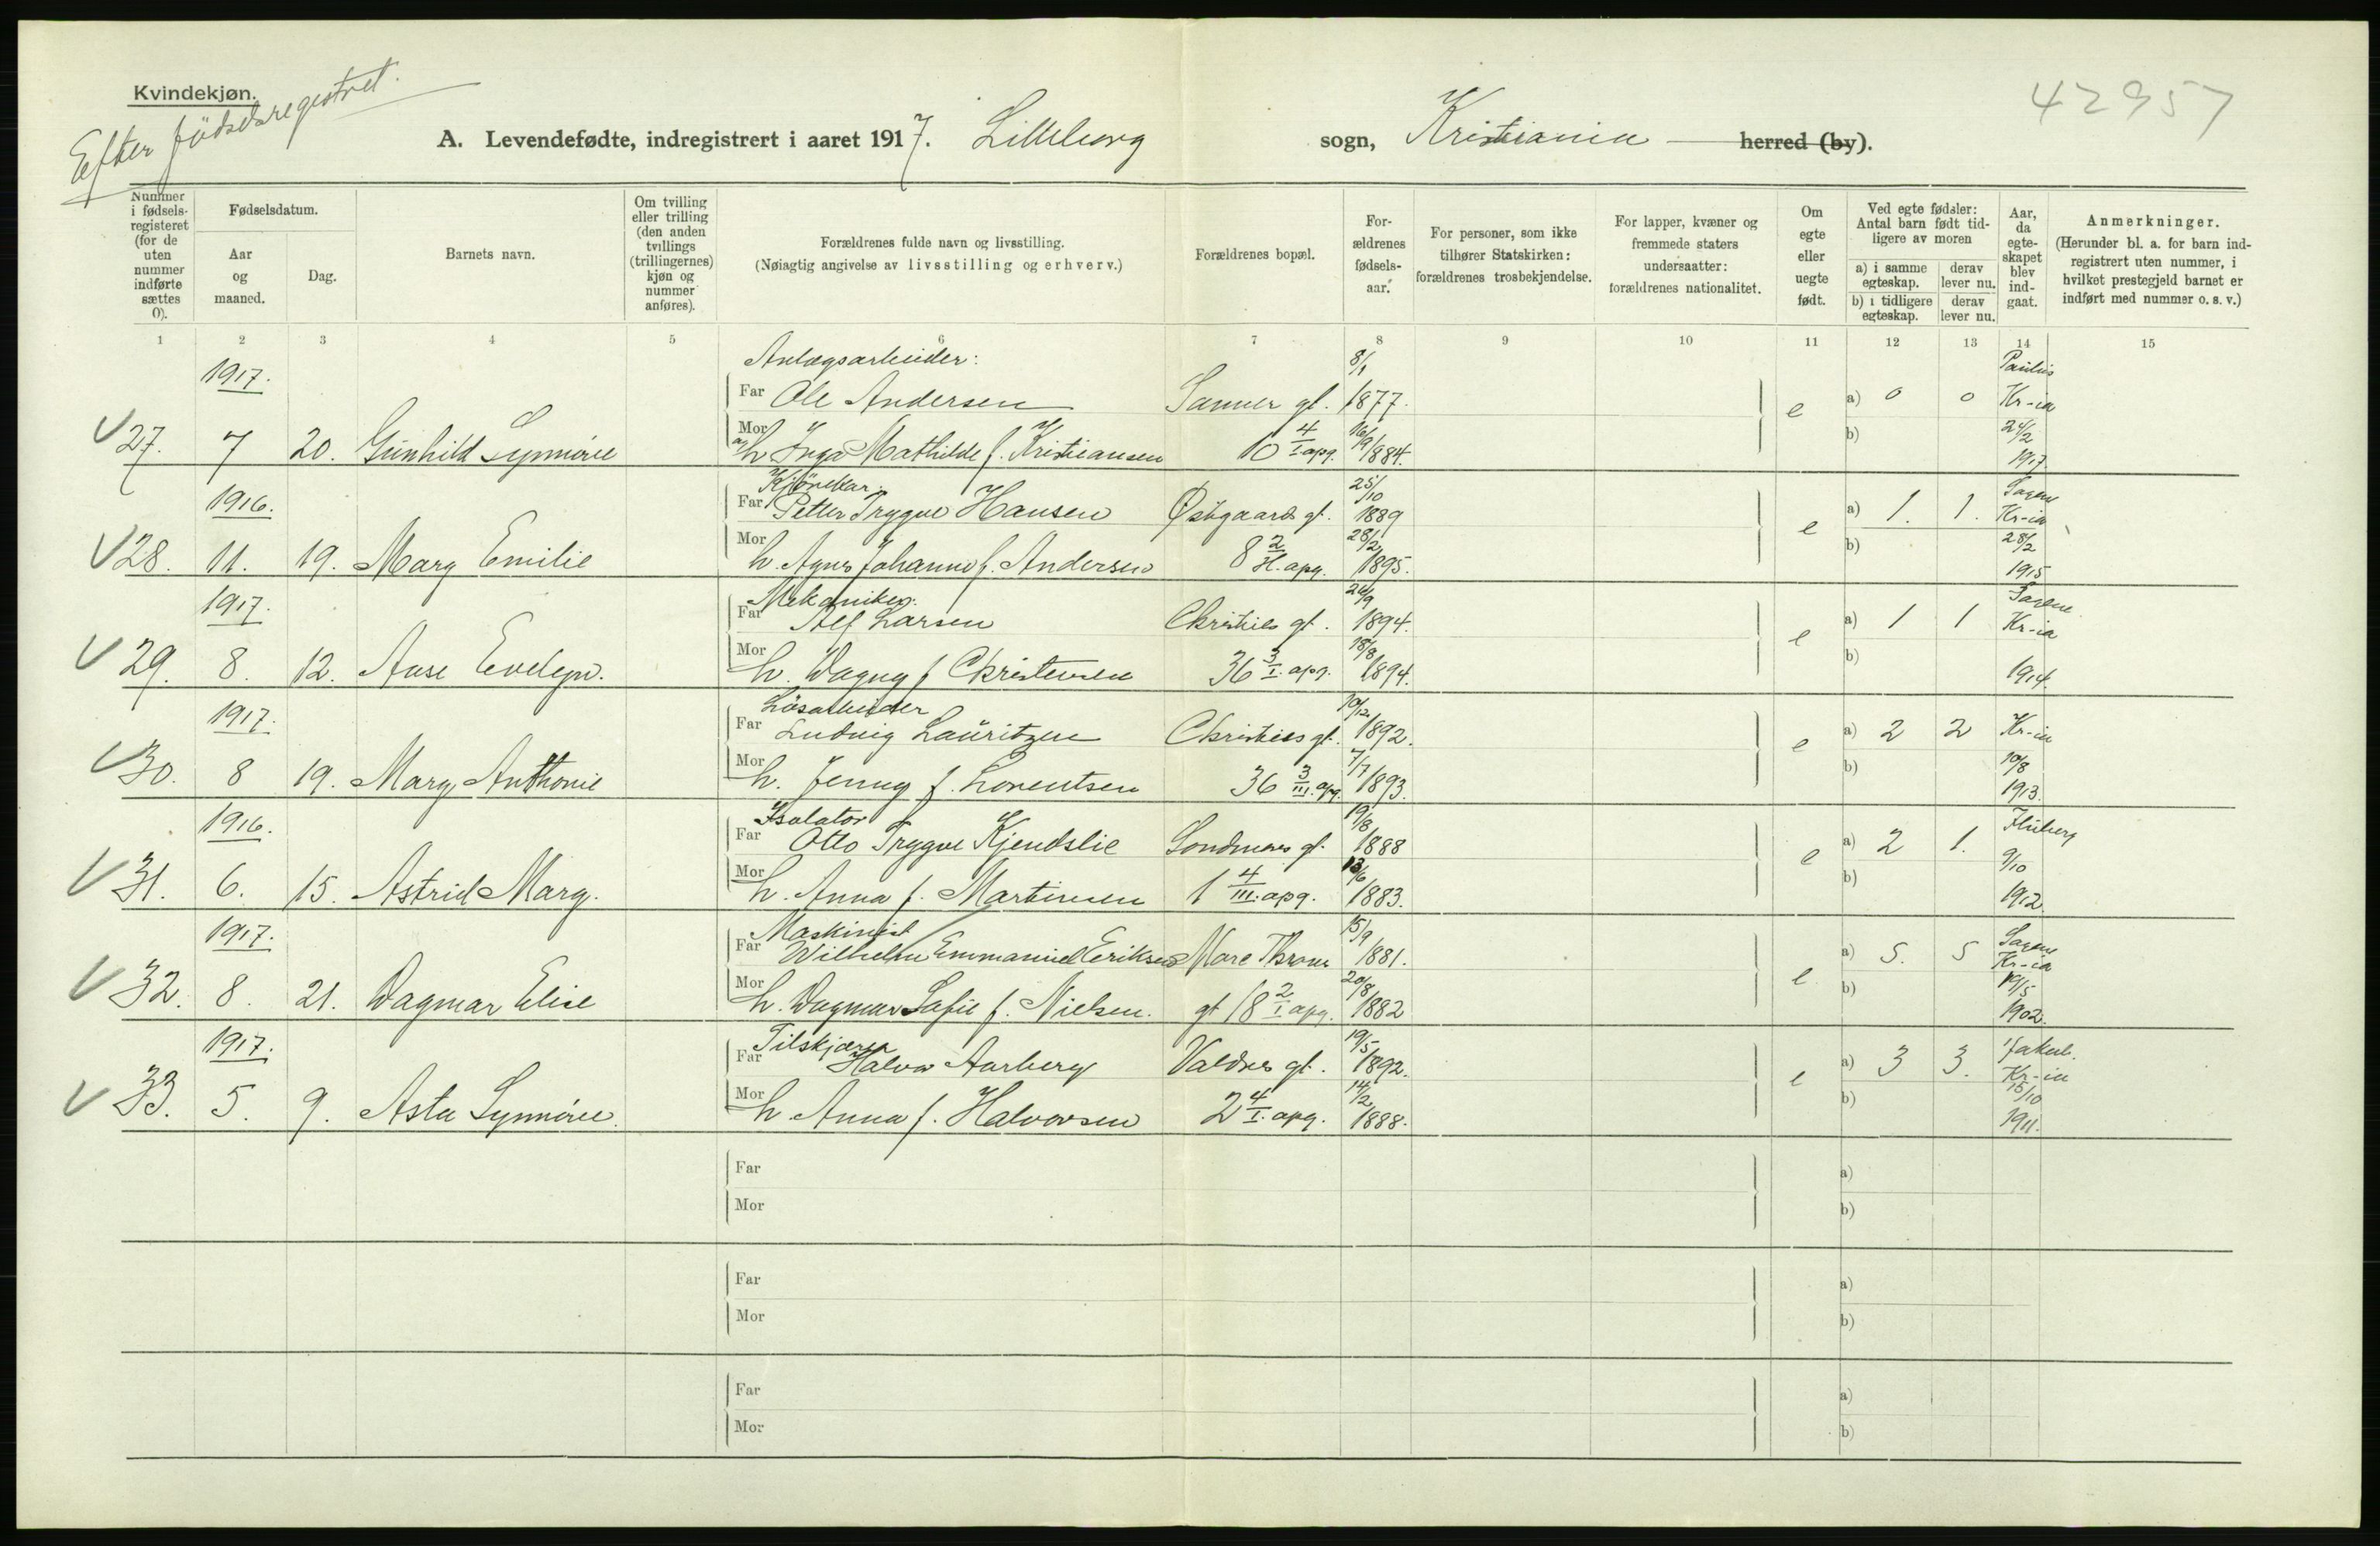 Kvindekjøn.
Efter födselsregistret.
42957
A. Levendefødte, indregistrert i aaret 1917. Lilleborg sogn, Kristiania herred (by).
Nummer i fødsels-registeret (for de uten nummer indførte sættes 0).
Fødselsdatum.
Aar og maaned.
Dag.
Barnets navn.
Om tvilling eller trilling (den anden tvillings (trillingernes) kjøn og nummer anføres).
Forældrenes fulde navn og livsstilling.
(Nøiagtig angivelse av livsstilling og erhverv.)
Forældrenes bopæl.
For-ældrenes fødsels-aar.
For personer, som ikke tilhører Statskirken: forældrenes trosbekjendelse.
For lapper, kvæner og fremmede staters undersaatter: forældrenes nationalitet.
Om egte eller uegte født.
Ved egte fødsler: Antal barn født tid-ligere av moren
a) i samme egteskap.
derav lever nu.
b) i tidligere egteskap.
derav lever nu.
Aar, da egte-skapet blev ind-gaat.
Anmerkninger.
(Herunder bl. a. for barn ind-registrert uten nummer, i hvilket prestegjeld barnet er indført med nummer o. s. v.)
1 2 3 4 5 6 7 8 9 10 11 12 13 14 15
1917. Anlægsarbeider: 8/1 Paulus
Far Ole Andersen Sanner gt. 1877. e a) 0 0 Kr-ia
V 27. 7 20. Gunhild Synnöve Mor og h Inga Mathilde f. Kristiansen 10 4/I apg. 16/9 1884. b) 24/2 1917
1916. Kjörekar. 25/10 Sagene
Far Petter Trygve Hansen Østgaards gt. 1889 e a) 1. 1. Kr-ia
V 28. 11. 19. Marg Emilie Mor h. Agnes Johanne f. Andersen 8 2/H. apg. 28/2 1895. b) 28/2 1915
1917. Mekaniker. 26/9 Sagene
Far Alf Larsen Christies gt. 1894. e a) 1 1 Kr-ia
V 29. 8. 12. Aase Evelyn. Mor h. Dagny f Christensen 36 3/I. apg. 18/8 1894. b) 1914.
1917. Lösarbeider 10/12
Far Ludvig Lauritzen Christies gt. 1892. e a) 2 2 Kr-ia
V 30. 8 19. Marg, Anthonie Mor h. Jenny f. Lorentsen 36 3/III. apg. 7/7 1893. b) 10/8 1913.
1916. Isolator 19/8 Fluberg
Far Otto Trygve Kjendslie Söndmørs gt. 1888 e a) 2 1.
V 31. 6. 15. Astrid Marg. Mor h. Anna f. Martinsen 1 4/III. apg. 13/6 1883. b) 9/10 1912.
1917. Maskinist 15/9 Sagene
Far Wilhelm Emmanuel Eriksen Marc Thranes 1881. e a) 5. 5 Kr-ia
V 32. 8. 21. Dagmar Elise Mor h. Dagmar Sofie f. Nielsen. gt 18 2/I apg. 20/8 1882 b) 19/5 1902.
1917. Tilskjærer 19/5 Jakob.
Far Halvor Aarberg Valdres gt. 1892. e a) 3 3. Kr-ia
V 33. 5. 9. Asta Synnöve. Mor h. Anna f. Halvorsen 2 4/I. apg. 14/2 1888. b) 15/10 1911.
Far a)
Mor b)
Far a)
Mor b)
Far a)
Mor b)